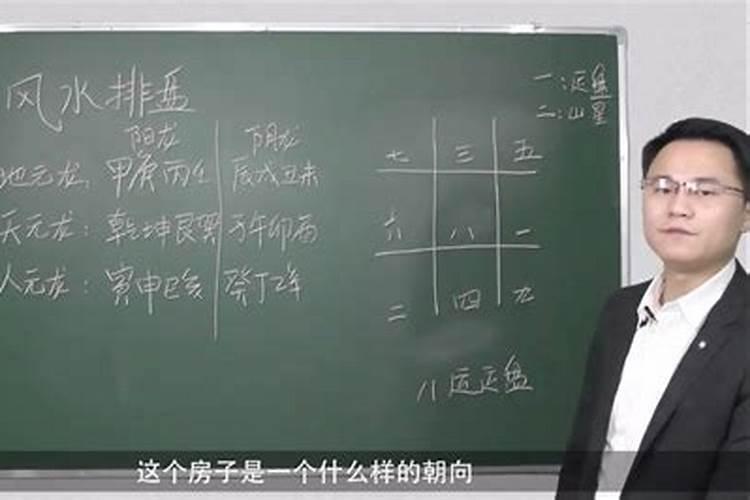 风水排盘
一:运盘
二:山星
阳龙 阴龙
地元龙: 甲庚丙壬 辰戌丑未
天元龙: 乾坤艮巽 子午卯酉
人元龙: 寅申巳亥 癸丁乙辛
七 三 五
六 八 一
二 四 九
八运运盘
这个房子是一个什么样的朝向